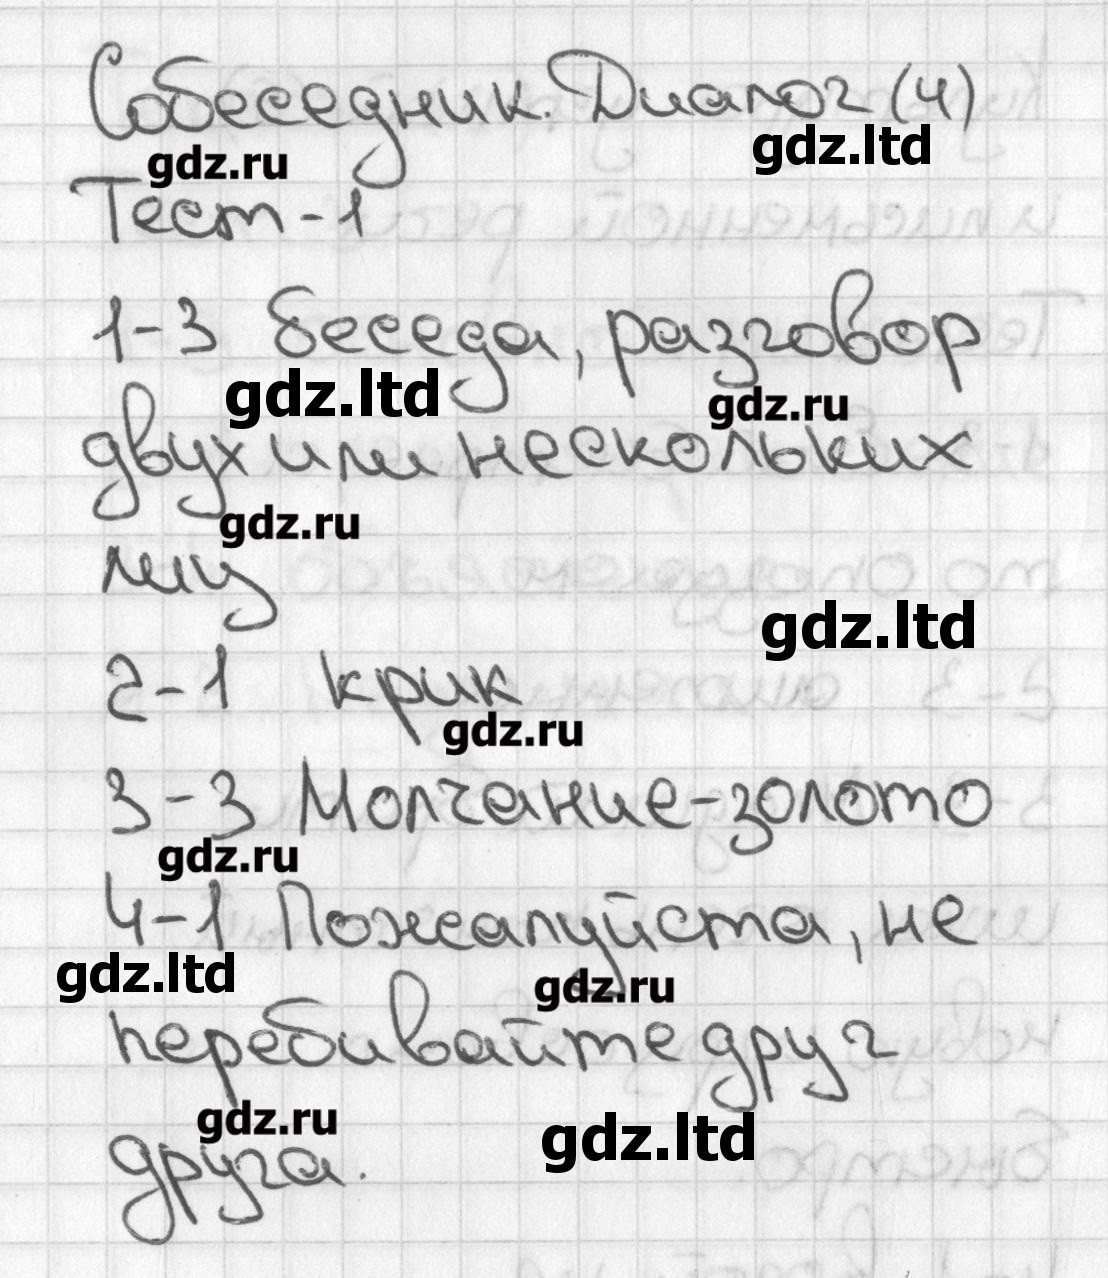 Собеседник. Диалог (4)
gdz.ru gdz.ltd
Тест-1
1-3 беседа, разговор
gdz.ltd gdz.ru
двух или нескольких
gdz.ru
лиц
gdz.ltd
2-1 крик
gdz.ru
3-3 Молчание-золото
gdz.ru
4-1 Пожалуйста, не
gdz.ltd gdz.ru
перебивайте друг
gdz.ru gdz.ltd
друга.